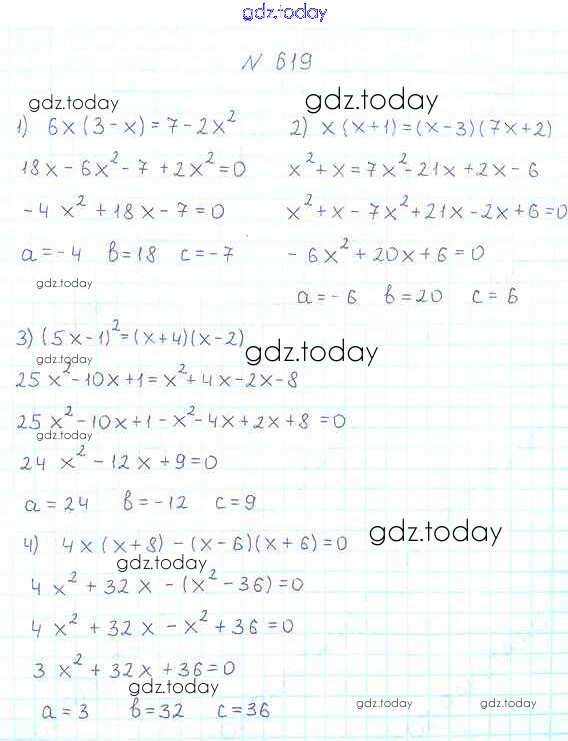 gdz.today
N 619
gdz.today
gdz.today
1) 6x(3-x)=7-2x²
18x-6x²-7+2x²=0
-4x²+18x-7=0
a=-4 b=18 c=-7
gdz.today
2) x(x+1)=(x-3)(7x+2)
x²+x=7x²-21x+2x-6
x²+x-7x²+21x-2x+6=0
-6x²+20x+6=0
a=-6 b=20 c=6
3) (5x-1)²=(x+4)(x-2)
gdz.today
gdz.today
25x²-10x+1=x²+4x-2x-8
25x²-10x+1-x²-4x+2x+8=0
gdz.today
24x²-12x+9=0
a=24 b=-12 c=9
gdz.today
4) 4x(x+8)-(x-6)(x+6)=0
gdz.today
4x²+32x-(x²-36)=0
4x²+32x-x²+36=0
3x²+32x+36=0
gdz.today
a=3 b=32 c=36
gdz.today
gdz.today